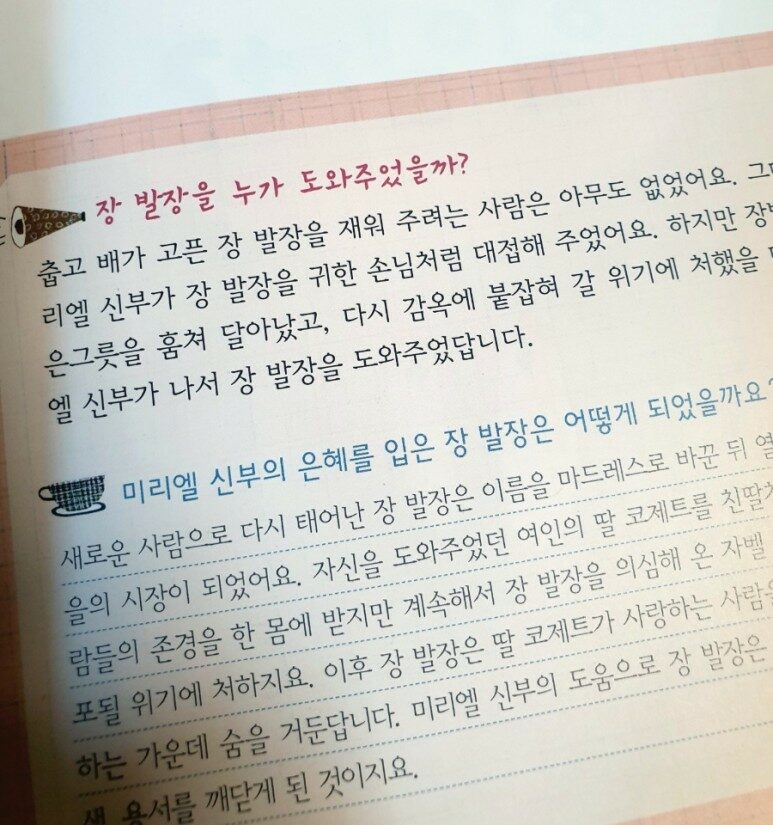 장 발장을 누가 도와주었을까?
춥고 배가 고픈 장 발장을 재워 주려는 사람은 아무도 없었어요.
리엘 신부가 장 발장을 귀한 손님처럼 대접해 주었어요. 하지만
은그릇을 훔쳐 달아났고, 다시 감옥에 붙잡혀 갈 위기에 처했을
엘 신부가 나서 장 발장을 도와주었답니다.
미리엘 신부의 은혜를 입은 장 발장은 어떻게 되었을까요?
새로운 사람으로 다시 태어난 장 발장은 이름을 마드레스로 바꾼 뒤
을의 시장이 되었어요. 자신을 도와주었던 여인의 딸 코제트를
람들의 존경을 한 몸에 받지만 계속해서 장 발장을 의심해 온 자벨
포될 위기에 처하지요. 이후 장 발장은 딸 코제트가 사랑하는
하는 가운데 숨을 거둔답니다. 미리엘 신부의 도움으로 장 발장은
용서를 깨닫게 된 것이지요.